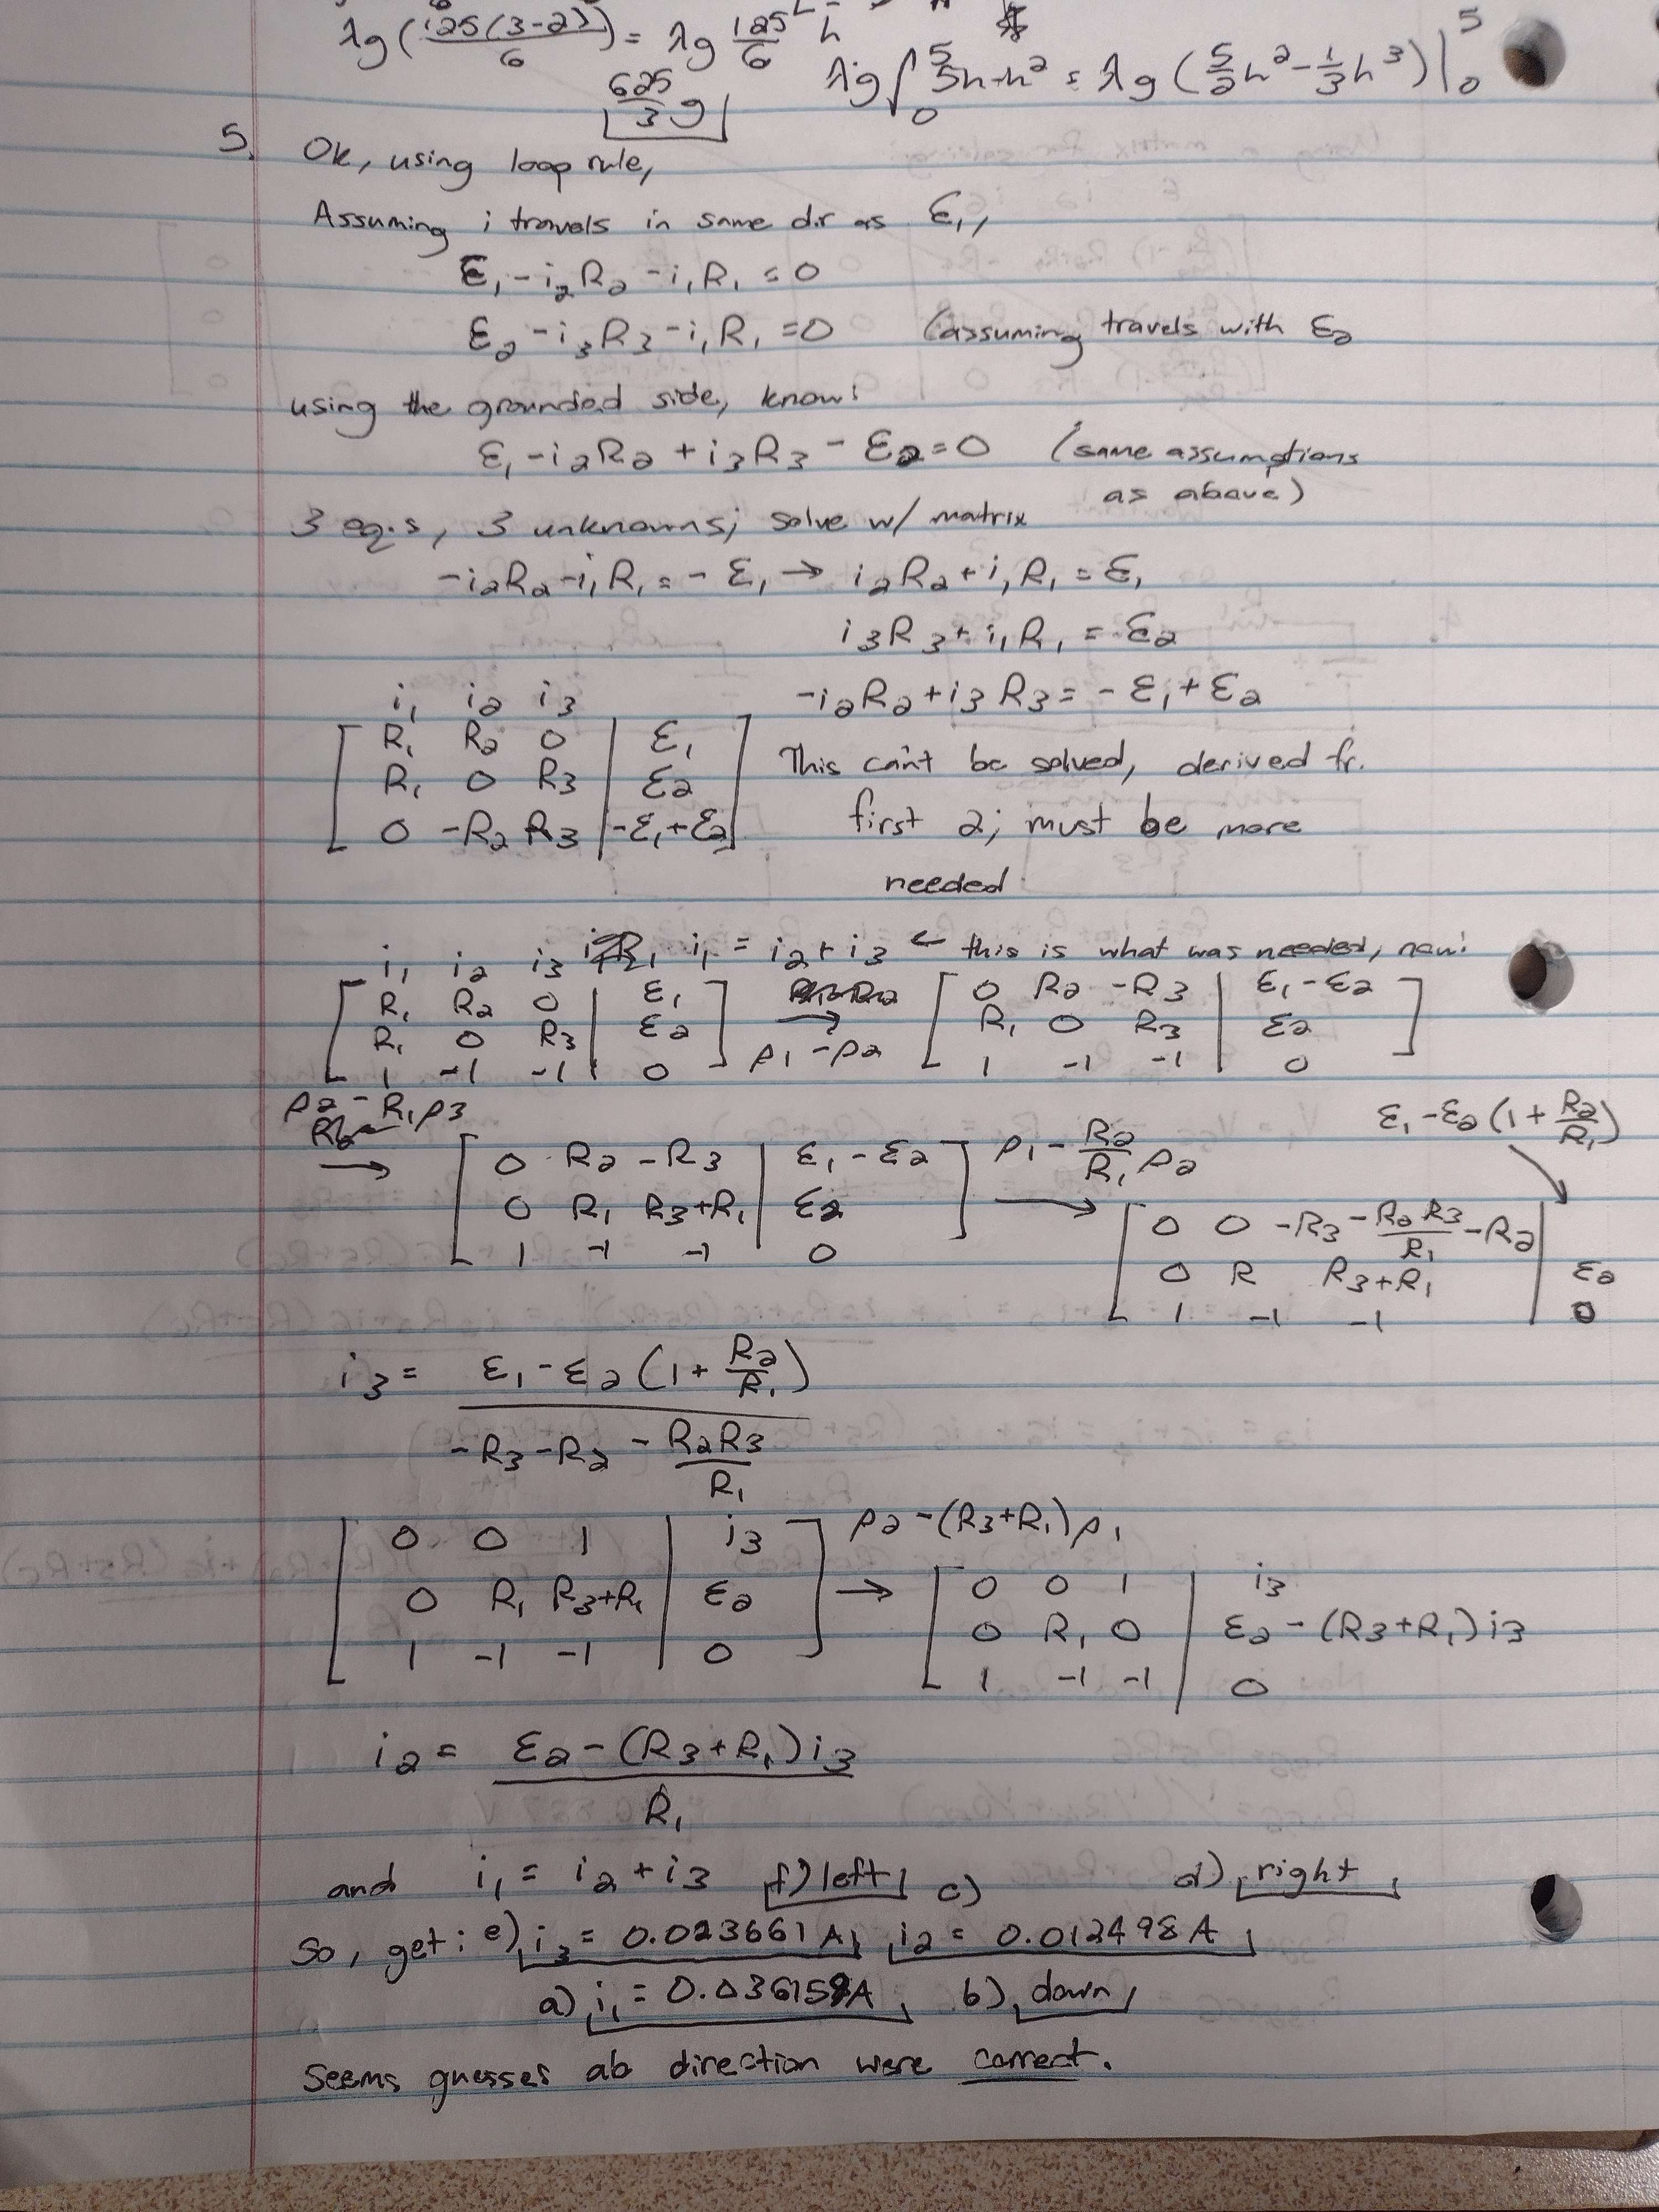 λg(125(3-2)/6) = λg 125/6 h
625/3 g   λg∫₀⁵ 5h-h² = λg (5/2 h² - 1/3 h³)|₀⁵
5. Ok, using loop rule,
Assuming i travels in same dir as ε₁,
ε₁ - i₂R₂ - i₁R₁ = 0
ε₂ - i₃R₃ - i₁R₁ = 0 (assuming travels with ε₂
using the grounded side, know:
ε₁ - i₂R₂ + i₃R₃ - ε₂ = 0 (same assumptions
as above)
3 eq.s, 3 unknowns; solve w/ matrix
-i₂R₂ - i₁R₁ = -ε₁ → i₂R₂ + i₁R₁ = ε₁
i₃R₃ + i₁R₁ = ε₂
i₁ i₂ i₃   -i₂R₂ + i₃R₃ = -ε₁ + ε₂
[ R₁ R₂ 0 | ε₁ ]
[ R₁ 0 R₃ | ε₂ ]
[ 0 -R₂ R₃ | -ε₁+ε₂ ]
This can't be solved, derived fr.
first 2; must be more
needed
i₁ = i₂ + i₃ ← this is what was needed, now:
i₁ i₂ i₃
[ R₁ R₂ 0 | ε₁ ]
[ R₁ 0 R₃ | ε₂ ]
[ 1 -1 -1 | 0 ]
→ ρ1 - ρ2
[ 0 R₂ -R₃ | ε₁-ε₂ ]
[ R₁ 0 R₃ | ε₂ ]
[ 1 -1 -1 | 0 ]
ρ2 - R₁ρ3
→
[ 0 R₂ -R₃ | ε₁-ε₂ ]
[ 0 R₁ R₃+R₁ | ε₂ ]
[ 1 -1 -1 | 0 ]
ρ1 - R₂/R₁ ρ2
→
ε₁-ε₂(1+R₂/R₁)
[ 0 0 -R₃ - R₂R₃/R₁ - R₂ |
[ 0 R R₃+R₁ | ε₂
[ 1 -1 -1 | 0
i₃ = (ε₁-ε₂(1+R₂/R₁)) / (-R₃-R₂ - R₂R₃/R₁)
[ 0 0 1 | i₃ ]
[ 0 R₁ R₃+R₁ | ε₂ ]
[ 1 -1 -1 | 0 ]
ρ2 - (R₃+R₁)ρ1
→
[ 0 0 1 | i₃
[ 0 R₁ 0 | ε₂ - (R₃+R₁)i₃
[ 1 -1 -1 | 0
i₂ = (ε₂ - (R₃+R₁)i₃) / R₁
and i₁ = i₂ + i₃ f) left c) d) right
So, get: e) i₃ = 0.023661 A, i₂ = 0.012498 A
a) i₁ = 0.036159A, b) down
Seems guesses ab direction were correct.